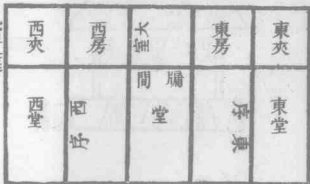 東夾
東房
大室
西房
西夾
東堂
東序
牖間
堂
西序
西堂